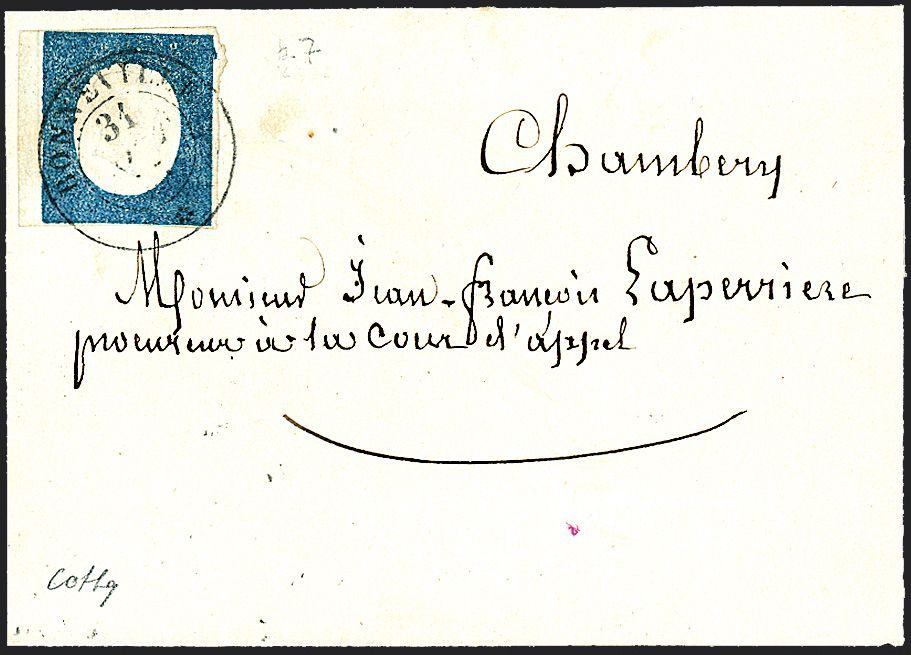 BONNEVILLE
31
Chambery
Monsieur Jean-françois Laperriere
procureur à la Cour d'appel